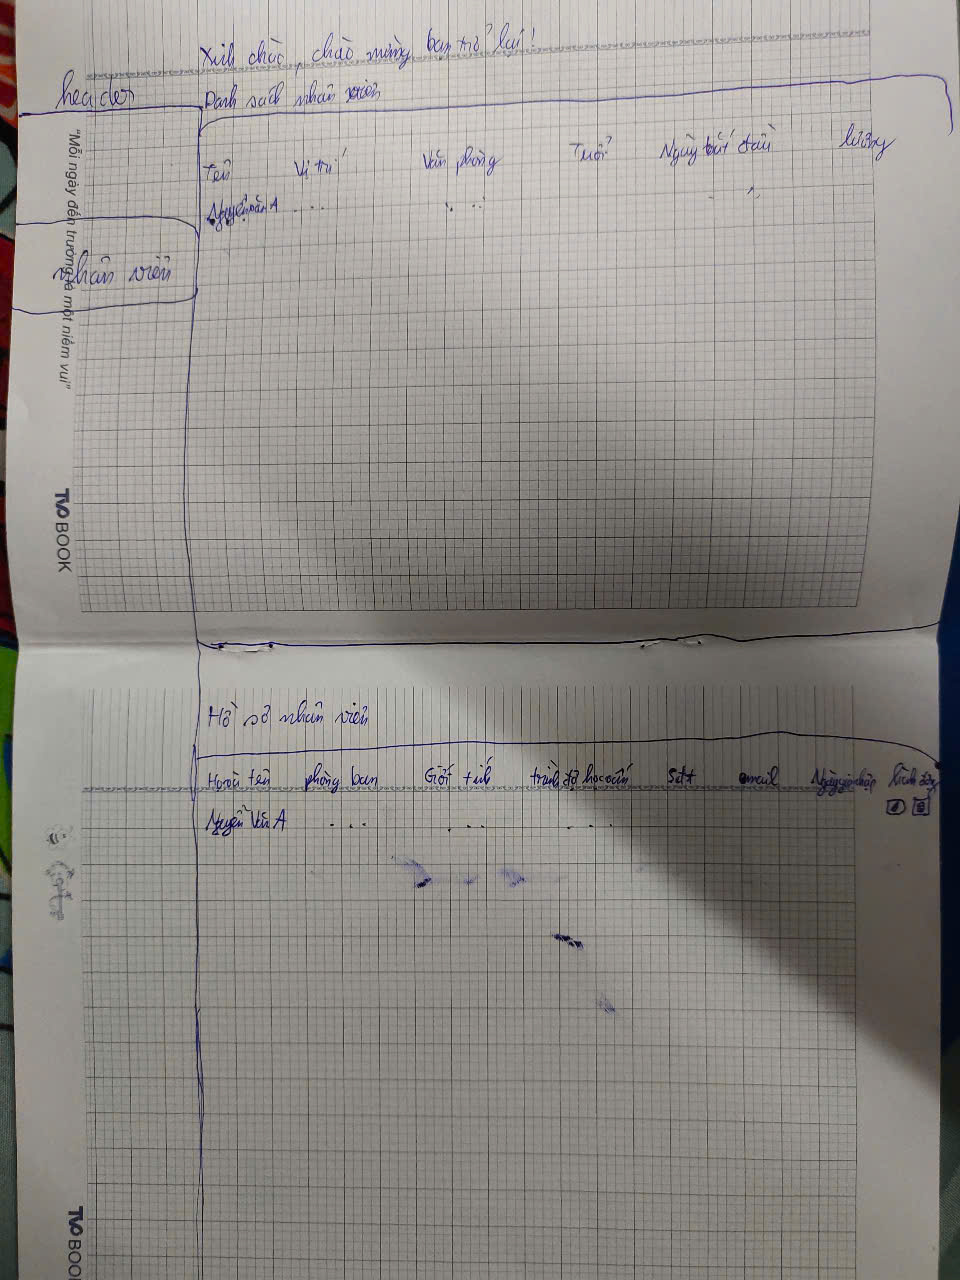 Xin chào, chào mừng bạn trở lại!
header
Danh sách nhân viên
"Mỗi ngày đến trường là một niềm vui"
Tên Vị trí Văn phòng Tuổi Ngày bắt đầu lương
Nguyễn Văn A ... ...
nhân viên
TVO BOOK
Hồ sơ nhân viên
Họ và tên phòng ban Giới tính trình độ học vấn sđt email Ngày gia nhập hành động
Nguyễn Văn A ... ... ...
TVO BOOK